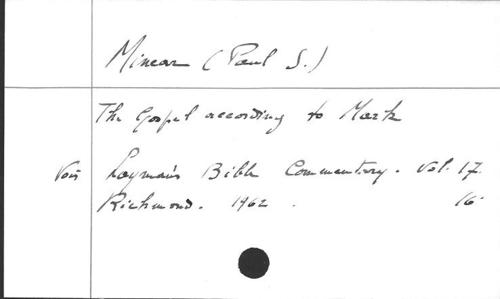 Minear (Paul S.)
The Gospel according to Mark
Voir Layman's Bible Commentary. Vol. 17.
Richmond. 1962. 16°